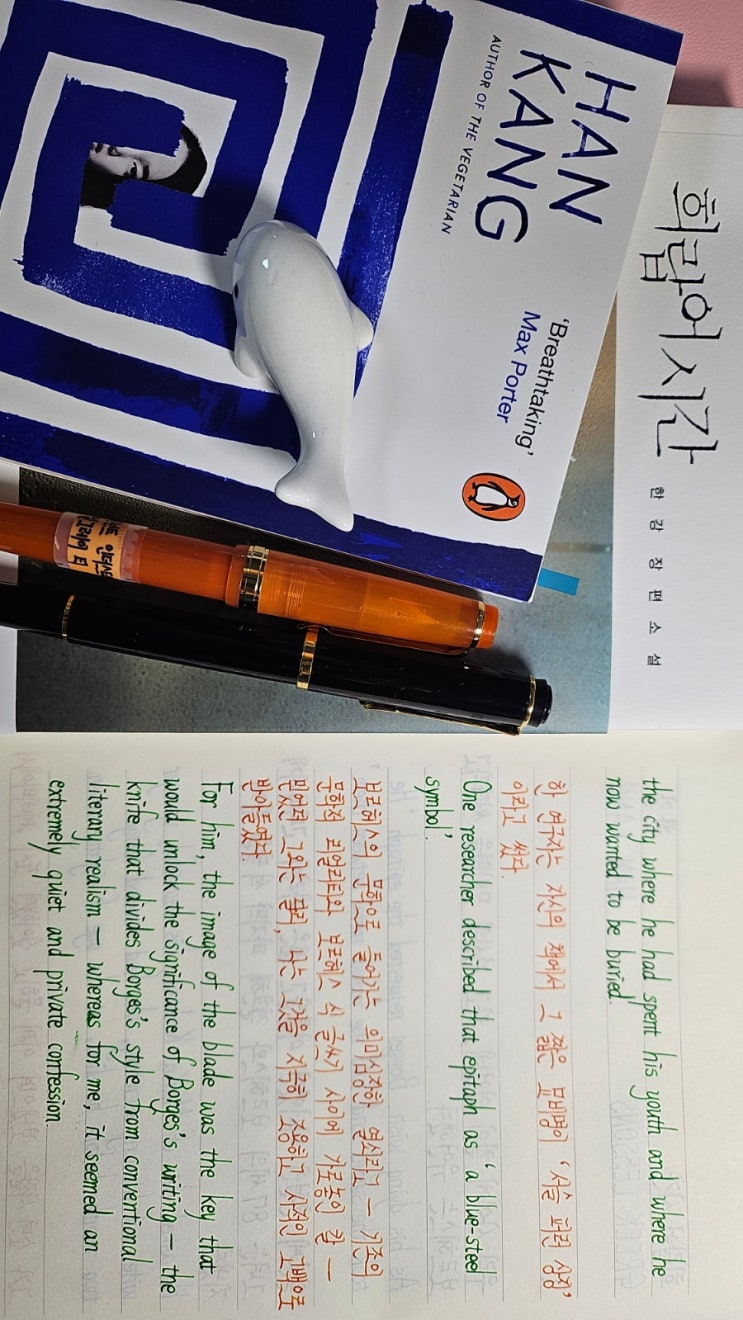 HAN
KANG
AUTHOR OF THE VEGETARIAN
'Breathtaking'
Max Porter
희랍어 시간
한강 장편소설
the city where he had spent his youth and where he
now wanted to be buried.
한 연구자는 자신의 책에서 그 짧은 묘비명이 '서슬 퍼런 상징'
이라고 썼다.
One researcher described that epitaph as a 'blue-steel
symbol'.
보르헤스의 문학으로 들어가는 의미심장한 열쇠라고 — 기존의
문학적 리얼리티와 보르헤스 식 글쓰기 사이에 가로놓인 칼 —
믿었던 그와는 달리, 나는 그것을 지극히 조용하고 사적인 고백으로
받아들였다.
For him, the image of the blade was the key that
would unlock the significance of Borges's writing — the
knife that divides Borges's style from conventional
literary realism — whereas for me, it seemed an
extremely quiet and private confession.